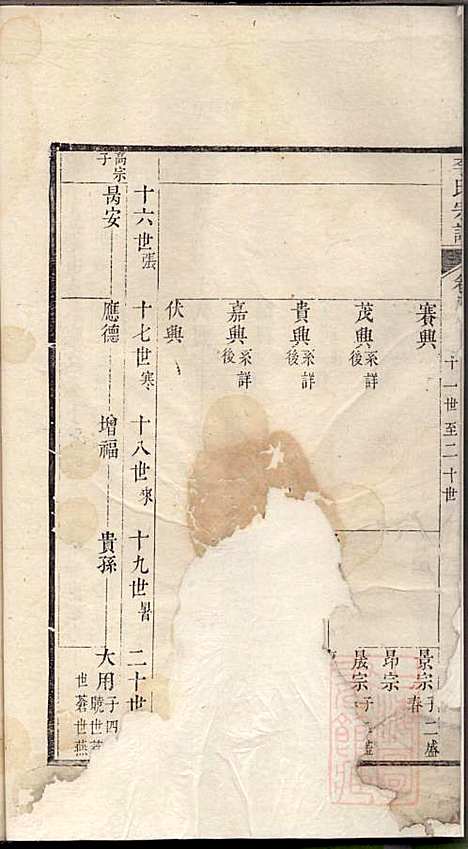 李氏宗譜
十一世至二十世
賽興
景宗 子二 盛 春
昂宗
茂興 系詳後
晟宗 子 盛
貴興 系詳後
嘉興 系詳後
伏興
十六世 張
十七世 寒
十八世 來
十九世 暑
二十世
高宗子
昺安
應德
增福
貴孫
大用 子四 驍世 世蒼世燕